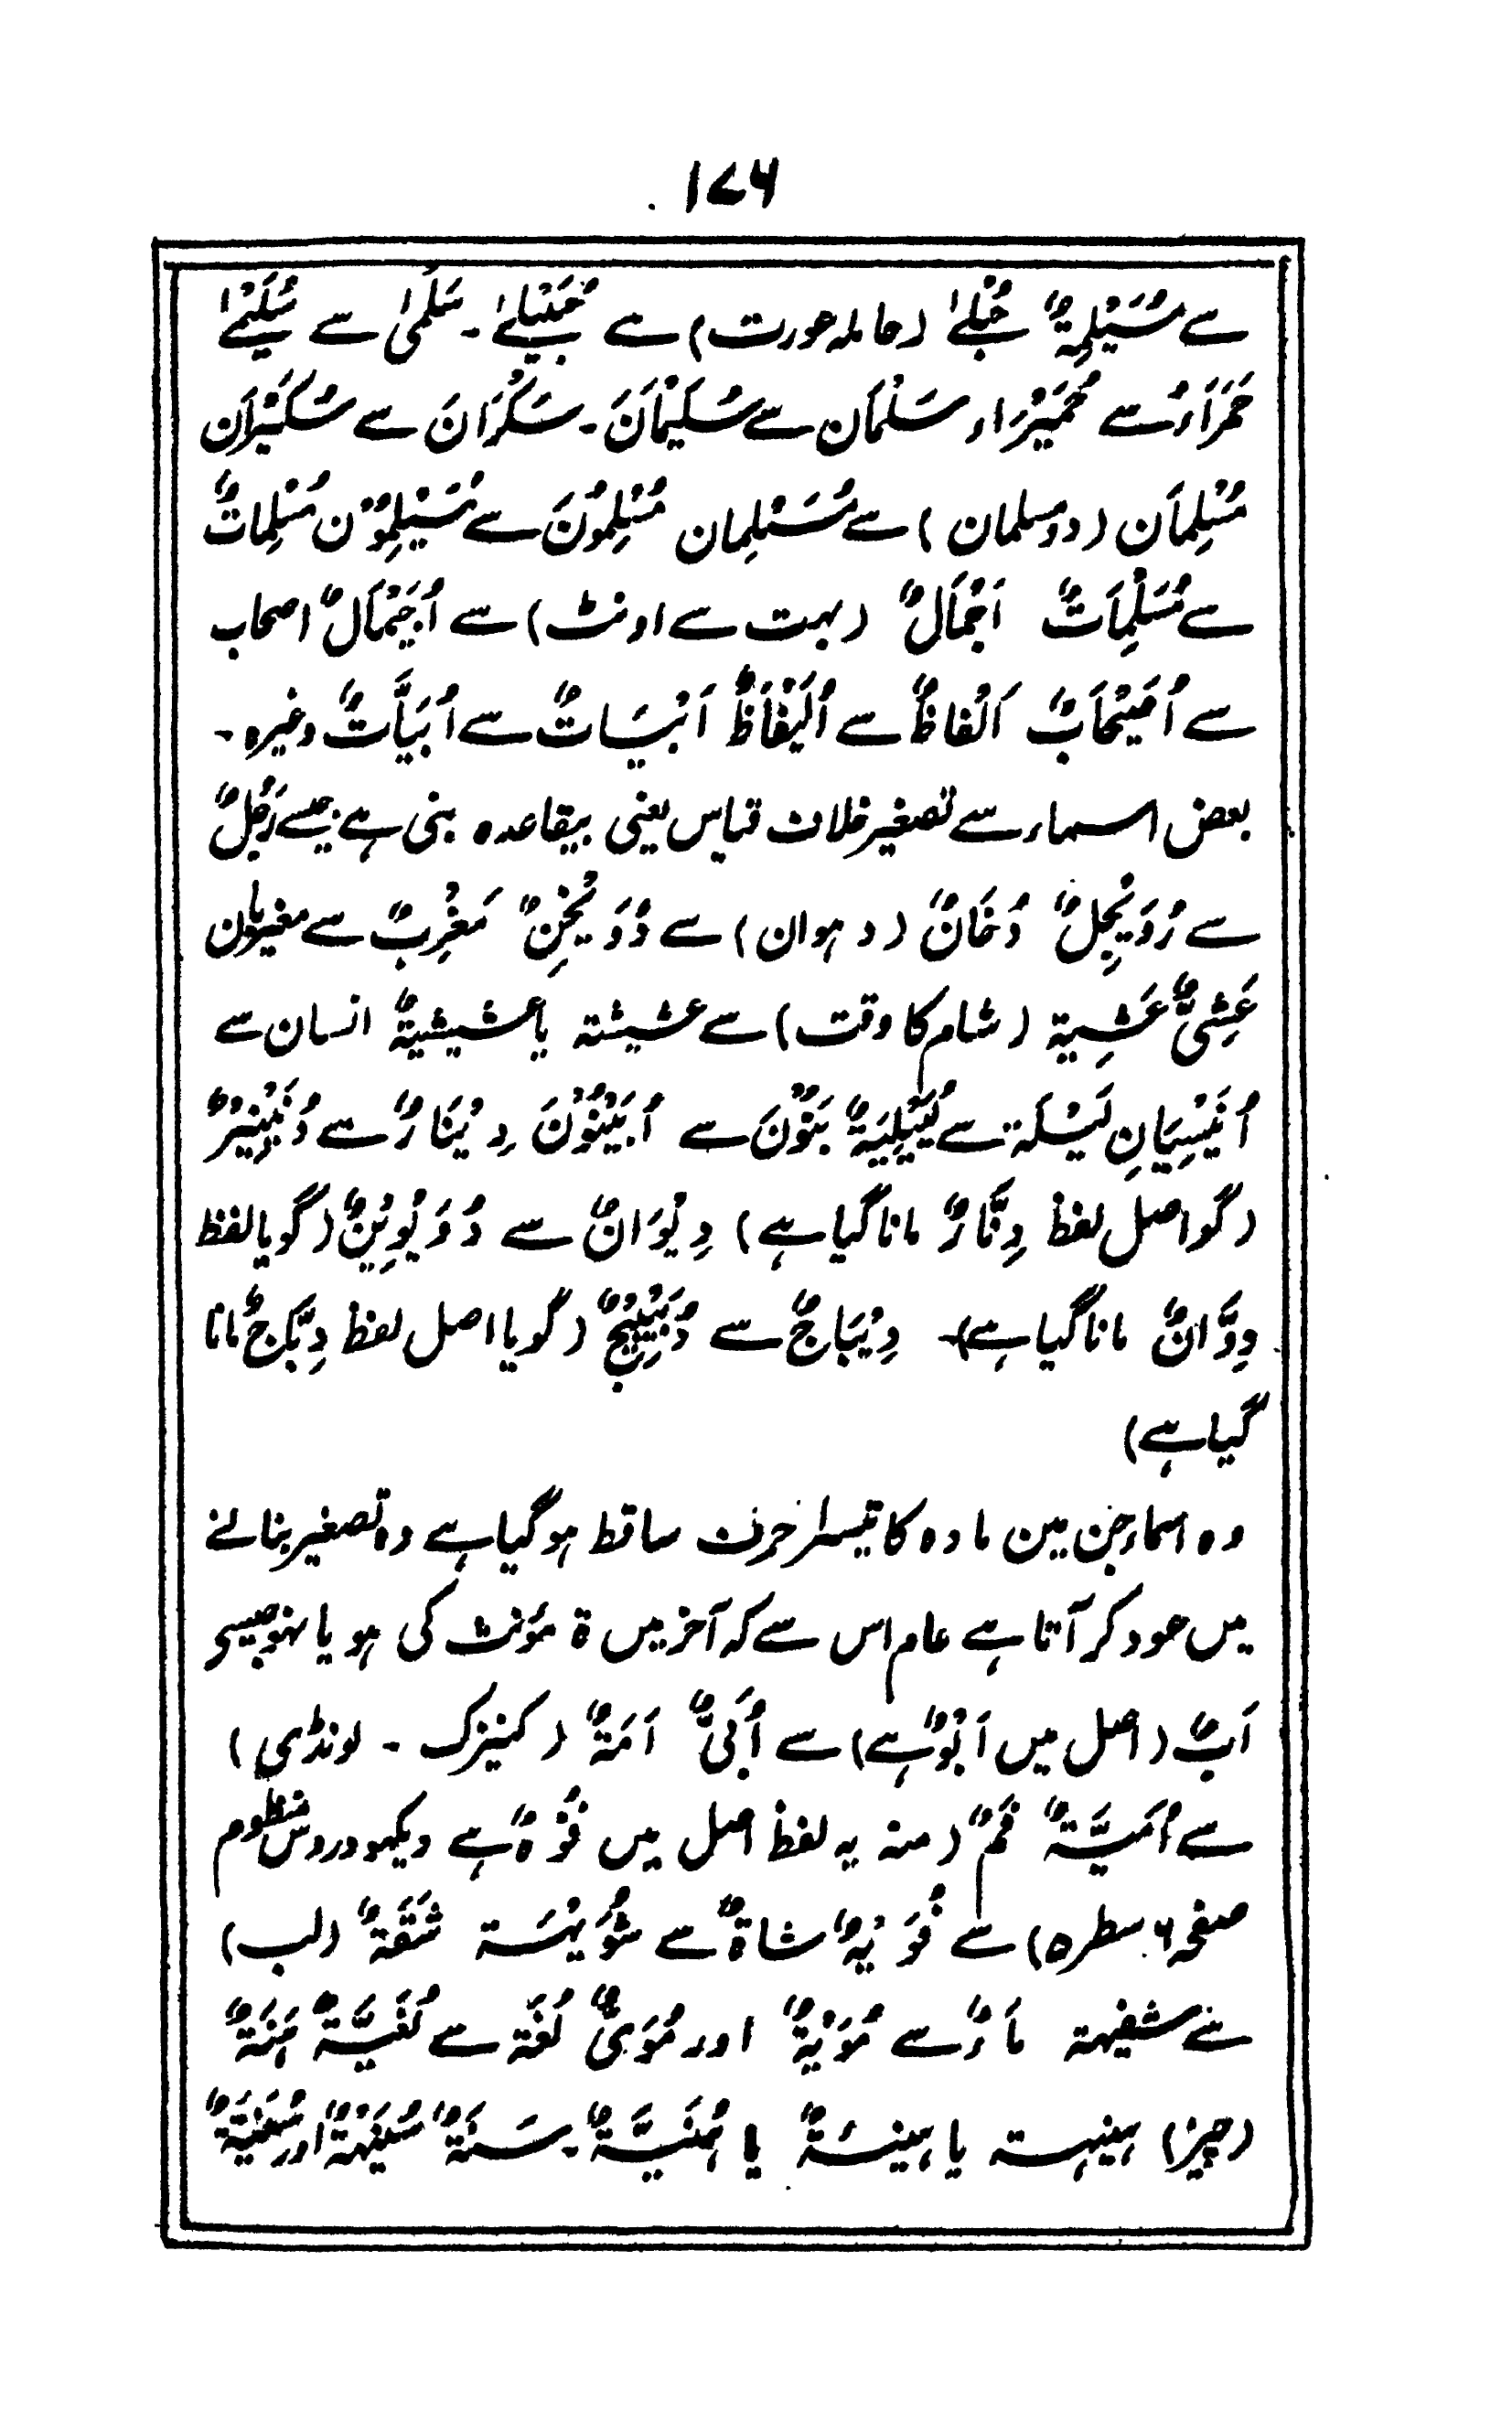 ۱۷۶
سے مُسَیْلِمَۃٌ حُبْلےٰ (حاملہ عورت) سے حُبَیْلےٰ۔ سَلْمیٰ سے سُلَیْمےٰ
حَمَرَاءُ سے حُمَیْرَاء سَلْمَان سے سُلَیْمَانَ۔ سَکْرَانَ سے سُکَیْرَان
مُسْلِمَان (دو مسلمان) سے مُسَیْلِمان مُسْلِمُوْنَ سے مُسَیْلِمُوْن مُسْلِمَاتٌ
سے مُسَیْلِمَاتٌ اَجْمَالٌ (بہت سے اونٹ) سے اُجَیْمَالٌ اصحاب
سے اُصَیْحَابٌ اَلْفاظٌ سے اُلَیْفَاظٌ اَبْیَاتٌ سے اُبَیَّاتٌ وغیرہ۔
بعض اسماء سے تصغیر خلاف قیاس یعنی بیقاعدہ بنی ہے جیسے رَجُلٌ
سے رُوَیْجِلٌ دُخَانٌ (دہوان) سے دُوَیْخِنٌ مَغْرِبٌ سے مغیربان
عَشِیٌّ عَشِیۃ (شام کا وقت) سے عشیشۃ یا عشیشیۃٌ انسان سے
اُنَیْسِیَانِ لَیْلَۃ سے لُیَیْلِیَۃٌ بَنُوْنَ سے اُبَیْنُوْنَ دِیْنَارٌ سے دُنَیْنِیْرٌ
(گو اصل لفظ دِنَّارٌ مانا گیا ہے) دِیْوَانٌ سے دُوَیْوِیْنٌ (گویا لفظ
دِوَّانٌ مانا گیا ہے)۔ دِیْبَاجٌ سے دُبَیْبِیْجٌ (گویا اصل لفظ دِبَّاجٌ مانا
گیا ہے)
وہ اسماء جن مین مادہ کا تیسرا حرف ساقط ہو گیا ہے وہ تصغیر بنانے
میں عود کر آتا ہے عام اس سے کہ آخر میں ۃ مؤنث کی ہو یا نہو جیسی
اَبٌ (اصل میں اَبْوٌ ہے) سے اُبَیٌّ اَمَۃٌ (کنیزک ۔ لونڈی)
سے اُمَیَّۃٌ فَمٌ (منہ یہ لفظ اصل میں فُوْہٌ ہے دیکہو دروس منظوم
صفحہ ۶ سطر ۵) سے فُوَیْہٌ شاۃٌ سے شُوَیْہَۃ شَفَۃٌ (لب)
سے شفیہۃ مَاءٌ سے مُوَیْۃٌ اور مُوَیٌّ لُغَۃ سے لُغَیَّۃٌ ہَنَۃٌ
(چیز) ہنیہۃ یا ہنیئۃٌ یا ہُنَیَّۃٌ۔ سَنَۃٌ سُنَیْہَۃٌ اور سُنَیَّۃٌ